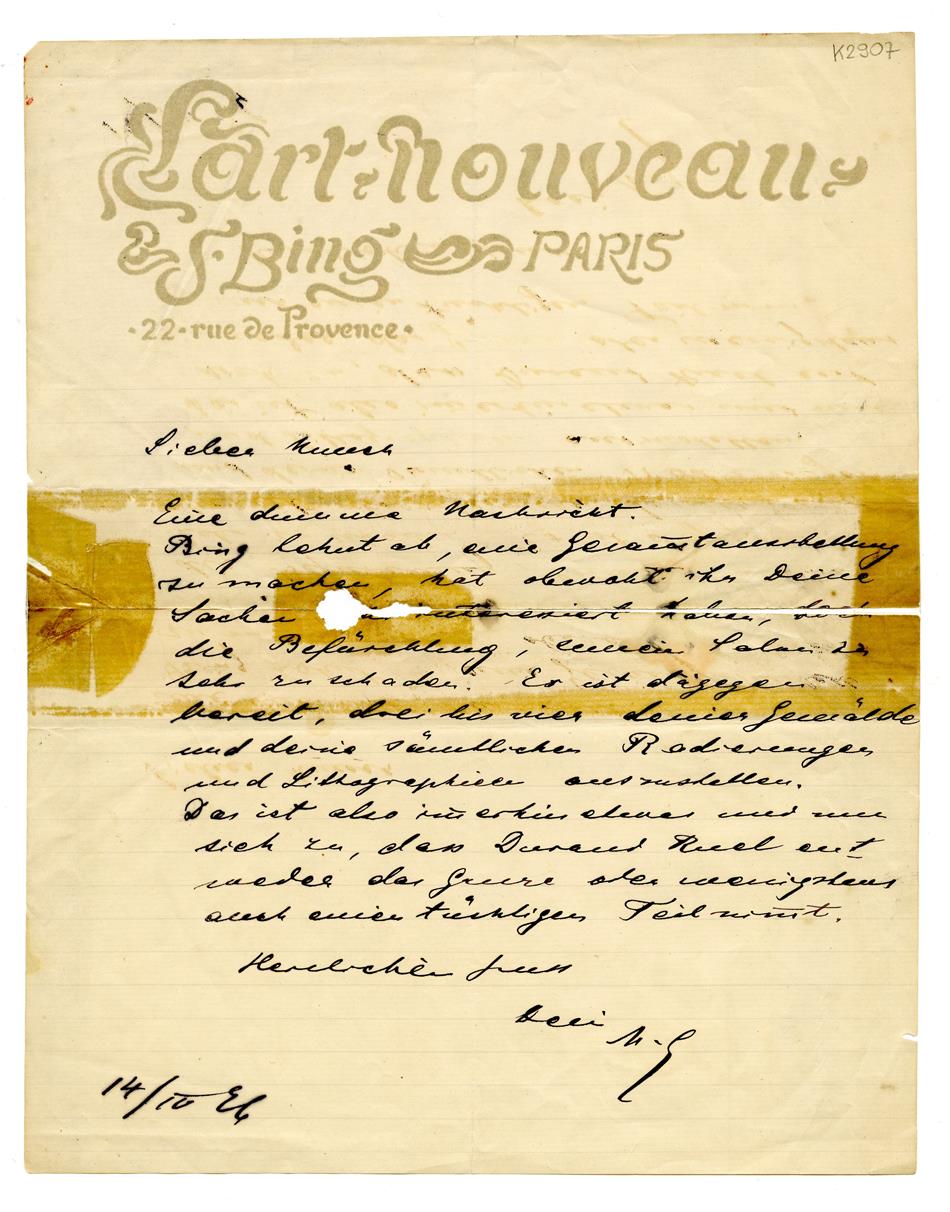 K2907
L'art nouveau
S. Bing PARIS
22 rue de Provence
Lieber Munch
Eine dumme Nachricht.
Bing lehnt ab, eine Gesam̅tausstellung
zu machen, hat obwohl ihn Deine
Sachen interessiert haben,
die Befürchtung, seinen Salon zu
sehr zu schaden. Er ist dagegen
bereit, drei bis vier deiner Gemälde
und deine sämtlichen Radierungen
und Lithographien auszustellen.
Das ist also im̅erhin etwas und nun
sieh zu, dass Durand Ruel ent
weder das Ganze oder wenigstens
auch einen tüchtigen Teil nim̅t.
Herzlichen Gruss
Dein
M-G
14/IV 96